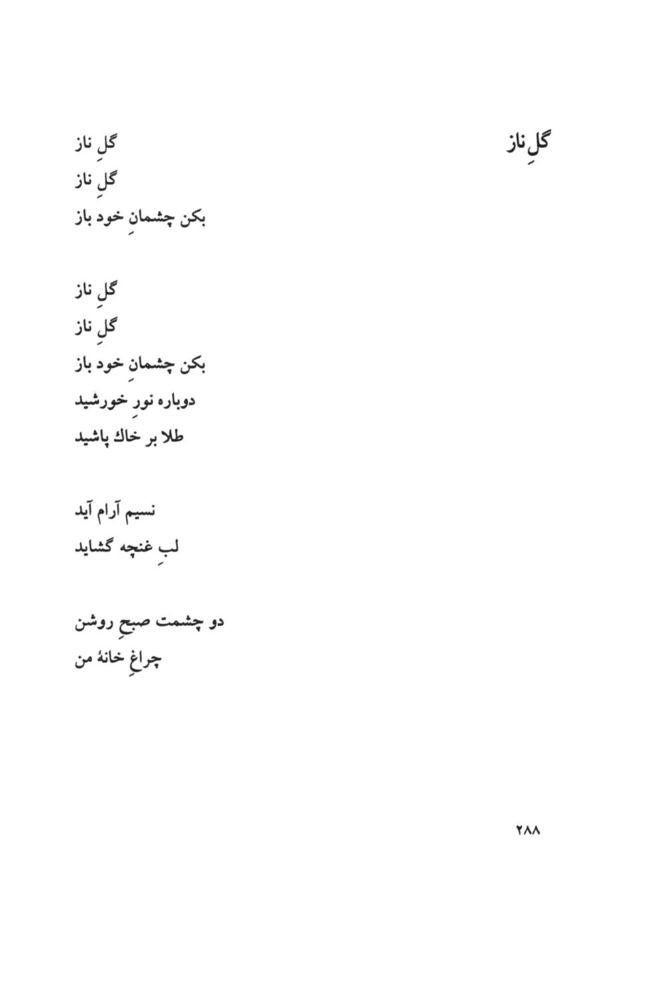 گلِ ناز
گلِ ناز
گلِ ناز
بکن چشمانِ خود باز
گلِ ناز
گلِ ناز
بکن چشمانِ خود باز
دوباره نورِ خورشید
طلا بر خاك پاشید
نسیم آرام آید
لبِ غنچه گشاید
دو چشمت صبحِ روشن
چراغِ خانهٔ من
۲۸۸